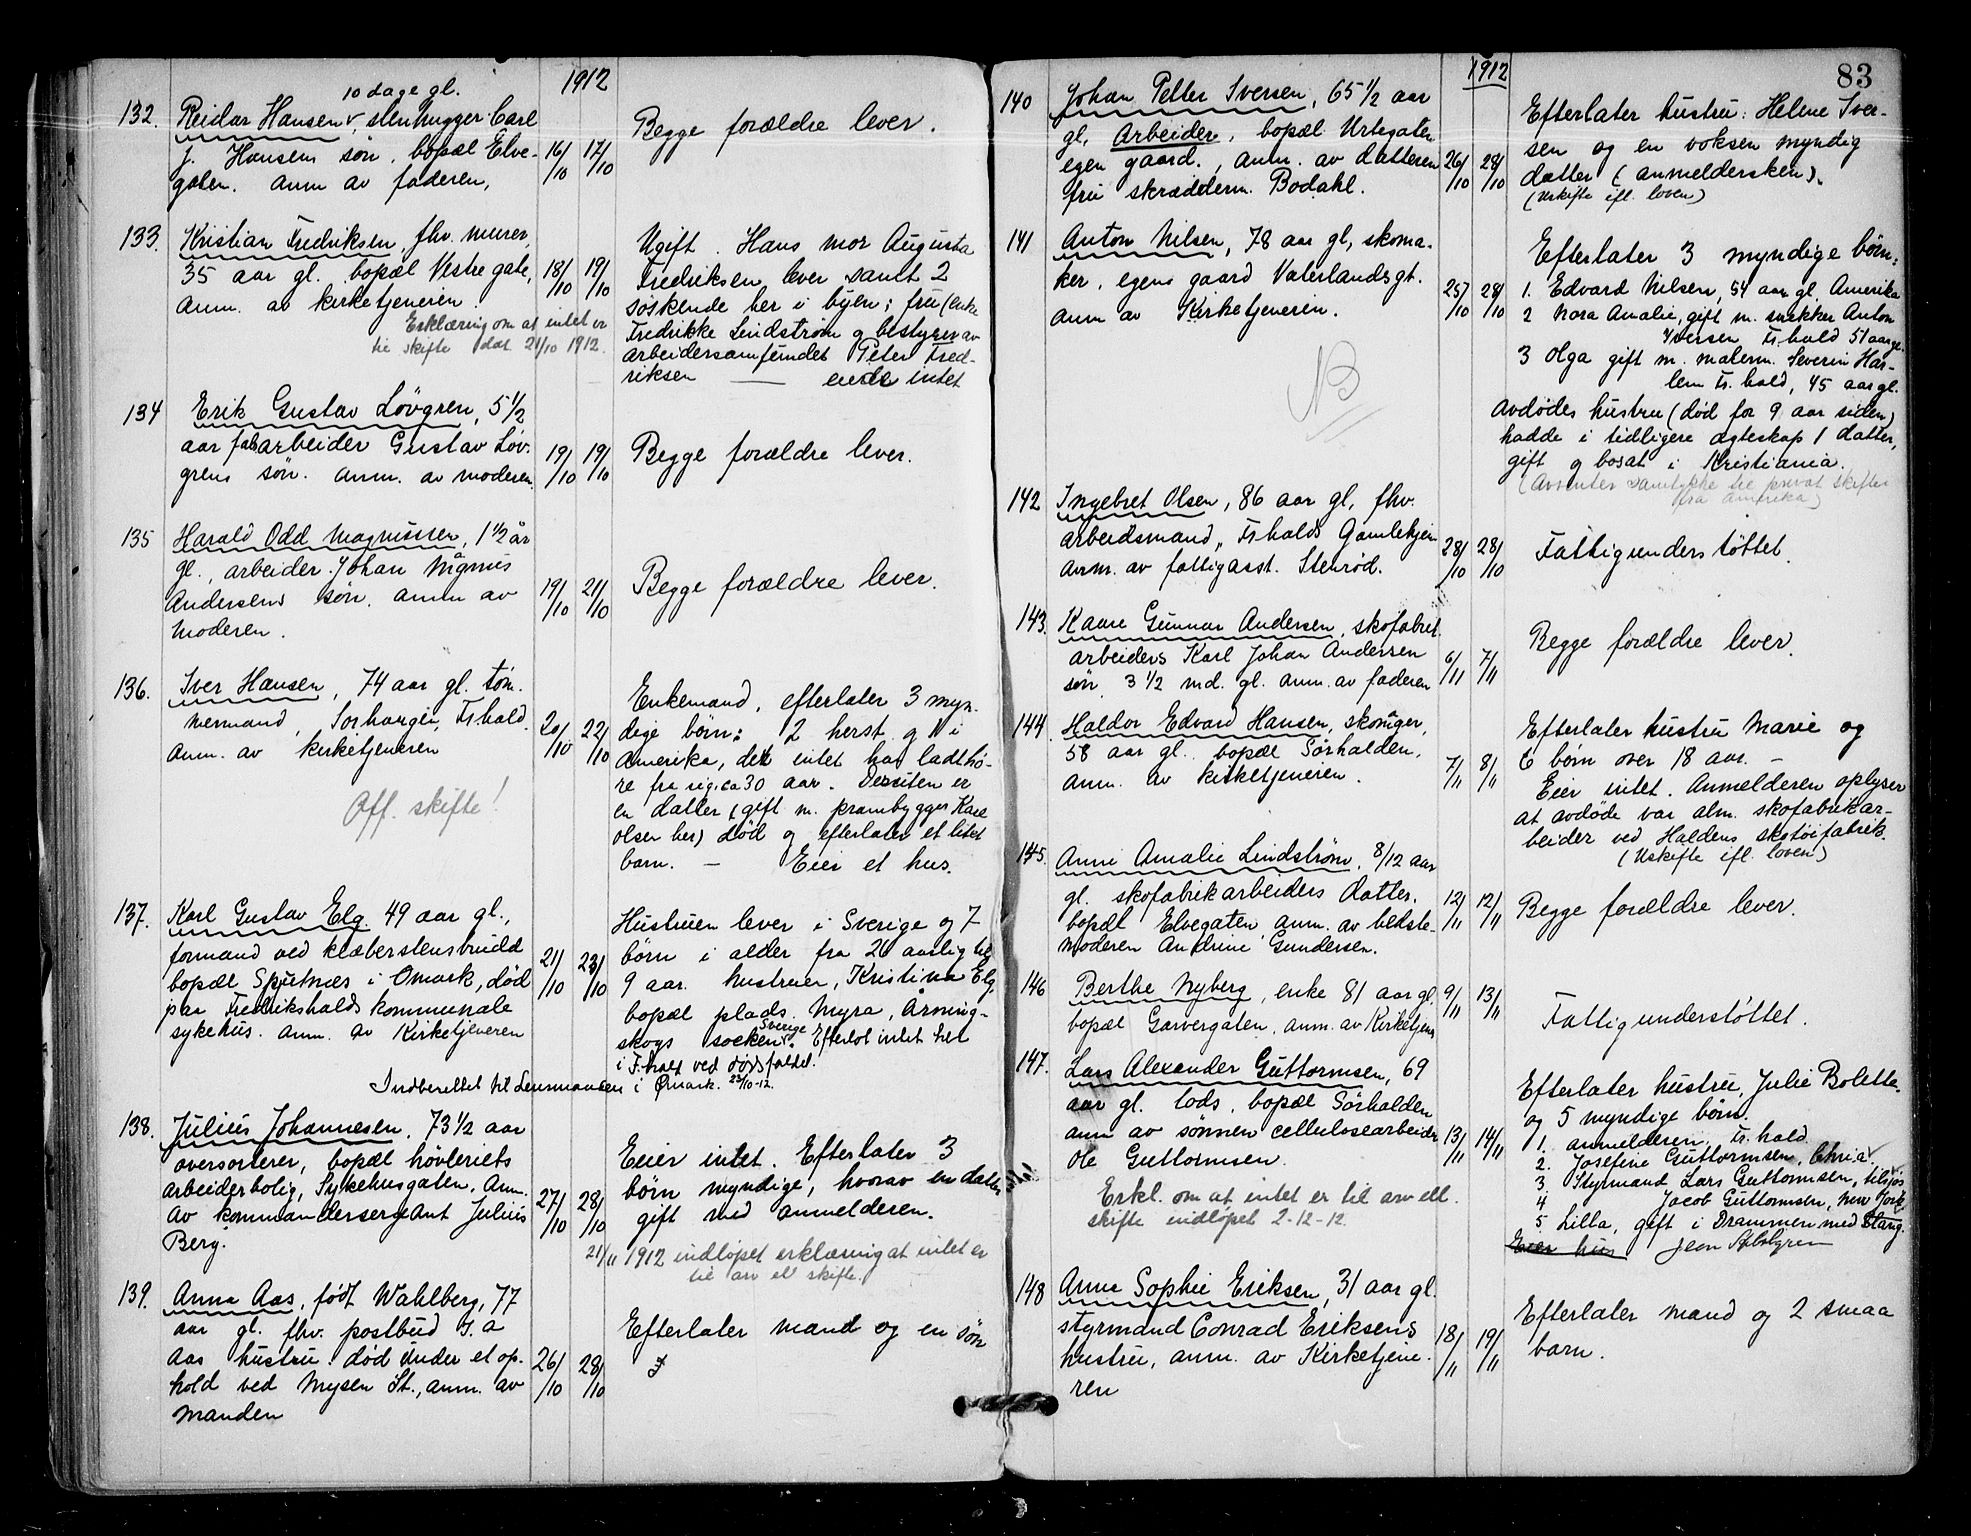 1912
10 dage gl.
132. Reidar Hansen, stenhugger Carl
J. Hansens søn, bopæl Elve-
gaten. Anm av faderen,
16/10 17/10
Begge forældre lever.
133. Kristian Fredriksen, fhv. murer,
35 aar gl. bopæl Vestre gate,
Anm. av kirketjeneren.
Erklæring om at intet er
til skifte dat 21/10 1912.
18/10 19/10
Ugift. Hans mor Augusta
Fredriksen lever samt 2
søskende her i byen; fru (enke
Fredrikke Lindstrøm og bestyrer av
arbeidersamfundet Peter Fred-
riksen — eiede intet
134 Erik Gustav Løvgren, 5 1/2
aar fabarbeider Gustav Løv-
grens søn. anm. av moderen.
19/10 19/10
Begge forældre lever.
135 Harald Odd Magnussen, 1 1/2 år
gl., arbeider Johan Magnus
Andersens søn. anm av
moderen.
19/10 21/10
Begge forældre lever.
136. Iver Hansen, 74 aar gl. tøm-
mermand, Fr.hald.
Anm. av kirketjeneren
Off. skifte!
20/10 22/10
Enkemand, efterlater 3 myn-
dige børn: 2 herst. og 1 i
Amerika, det intet har ladt hø-
re fra sig i ca 30 aar. Desuten er
en datter (gift m. prambygger Karl
Olsen her) død og efterlater et litet
barn. — Eier et hus.
137. Karl Gustav Elg. 49 aar gl.,
formand ved klæberstensbrudd
bopæl Spjutnæs i Ømark, død
paa Fredrikshalds kommunale
sykehus. anm. av Kirketjeneren
21/10 23/10
Hustruen lever i Sverige og 7
børn i alder fra 26 aarlig til
9 aar. hustruen, Kristina Elg,
bopæl plads. Myra, Årning-
skogs socken, Sverige. Efterlot intet her
i F.hald ved dødsfaldet.
Indberettet til Lensmanden i Ømark. 23/10-12.
138. Julius Johannesen, 73 1/2 aar
oversorterer, bopæl høvleriets
arbeiderbolig, Sykehusgaten, Anm.
av kommandersergeant Julius
Berg.
27/10 28/10
Eier intet. Efterlater 3
børn myndige, hvorav en datter
gift med anmelderen.
21/11 1912 indløpet erklæring at intet er
til arv el skifte.
139. Anna Aas, født Wahlberg, 77
aar gl. fhv. postbud J. A
Aas hustru. død under et op-
hold ved Mysen St., anm. av
manden
26/10 28/10
Efterlater mand og en søn
83
1912
140 Johan Petter Iversen, 65 1/2 aar
gl, Arbeider, bopæl Urtegaten
egen gaard., anm. av datteren
fru skrædderm. Bodahl.
26/10 28/10
Efterlater hustru: Helene Iver-
sen og en voksen myndig
datter (anmeldersken).
(Uskifte ifl. loven)
141 Anton Nilsen, 78 aar gl, skoma-
ker, egen gaard Vaterlandsgt.
anm av Kirketjeneren.
NB
25/10 28/10
Efterlater 3 myndige børn:
1. Edvard Nilsen, 54 aar gl. Amerika
2 Nora Amalie, gift m. snekker Anton
Iversen Fr.hald 51 aar gl.
3 Olga gift m. malerm. Severin Har-
lem Fr.hald, 45 aar gl.
Avdødes hustru (død for 9 aar siden)
hadde i tidligere egteskap 1 datter,
gift og bosat i Kristiania.
(Avventer samtykke til privat skifte
fra Amerika)
142 Ingebret Olsen, 86 aar gl, fhv.
arbeidsmand, Fr.halds Gamlehjem
Anm. av fattigasst. Stenrød.
28/10 28/10
Fattigunderstøttet
143. Kaare Gunnar Andersen, skofabrik-
arbeiders Karl Johan Andersen
søn, 3 1/2 md. gl. anm. av faderen
6/11 7/11
Begge forældre lever.
144 Haldor Edvard Hansen, skomager,
58 aar gl. bopæl Sørhalden,
anm. av kirketjeneren.
7/11 8/11
Efterlater hustru Marie og
6 børn over 18 aar. —
Eier intet. Anmelderen oplyser
at avdøde var alm. skofabrikar-
beider ved Haldens skotøifabrik.
(Uskifte ifl. loven)
145. Anni Amalie Lindstrøm, 8/12 aar
gl. skofabrikarbeiders datter,
bopæl Elvegaten, anm. av bedste-
moderen Andrine Gundersen.
12/11 12/11
Begge forældre lever.
146 Berthe Nyberg, enke 81 aar gl.
bopæl Garvergaten, anm. av Kirketjen
9/11 13/11
Fattigunderstøttet.
147. Lars Alexander Guttormsen, 69
aar gl. lods, bopæl Sørhalden
anm av sønnen cellulosearbeider
Ole Guttormsen.
Erkl. om at intet er til arv ell.
skifte indløpet 2-12-12.
13/11 14/11
Efterlater hustru, Julie Bolette
og 5 myndige børn.
1. anmelderen, Fr.hald
2. Josefine Guttormsen, Chria
3 Styrmand Lars Guttormsen, tilsjøs
4 Jacob Guttormsen, New York
5 Lilla, gift i Drammen med Stang.
Eier hus
148 Anna Sophie Eriksen, 31 aar gl.
styrmand Conrad Eriksens
hustru, anm. av Kirketjene-
ren
18/11 19/11
Efterlater mand og 2 smaa
barn.